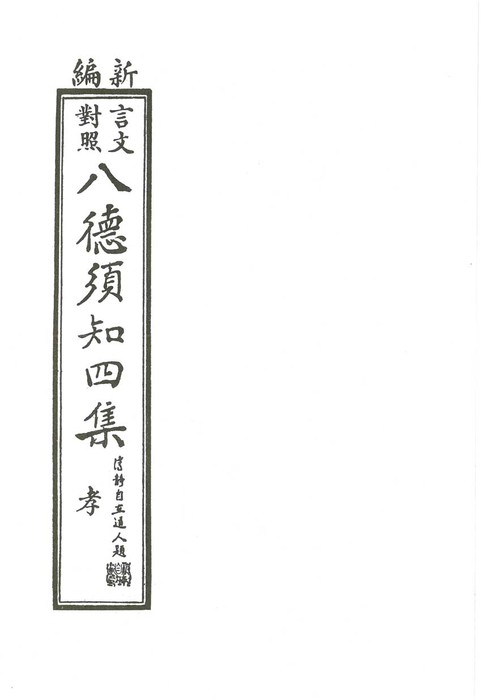 新編
言文
對照
八德須知四集
孝
靜自在道人題